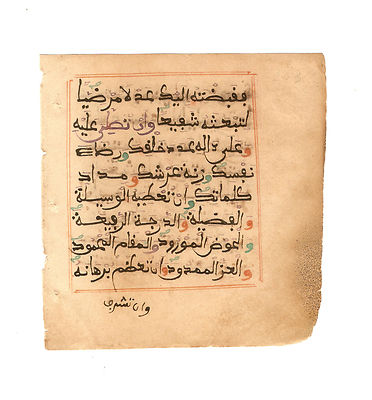 فقبضته اليك عدلا مرضيا
لتبعثه شفيعا وان تصلي عليه
وعلى ءاله عدد خلقك ورضاء
نفسك وزنة عرشك ومداد
كلماتك وان تعطيه الوسيلة
والفضيلة والدرجة الرفيعة
والحوض المورود والمقام المحمود
والعز الممدود وان تعظم برهانه
وان تشرف